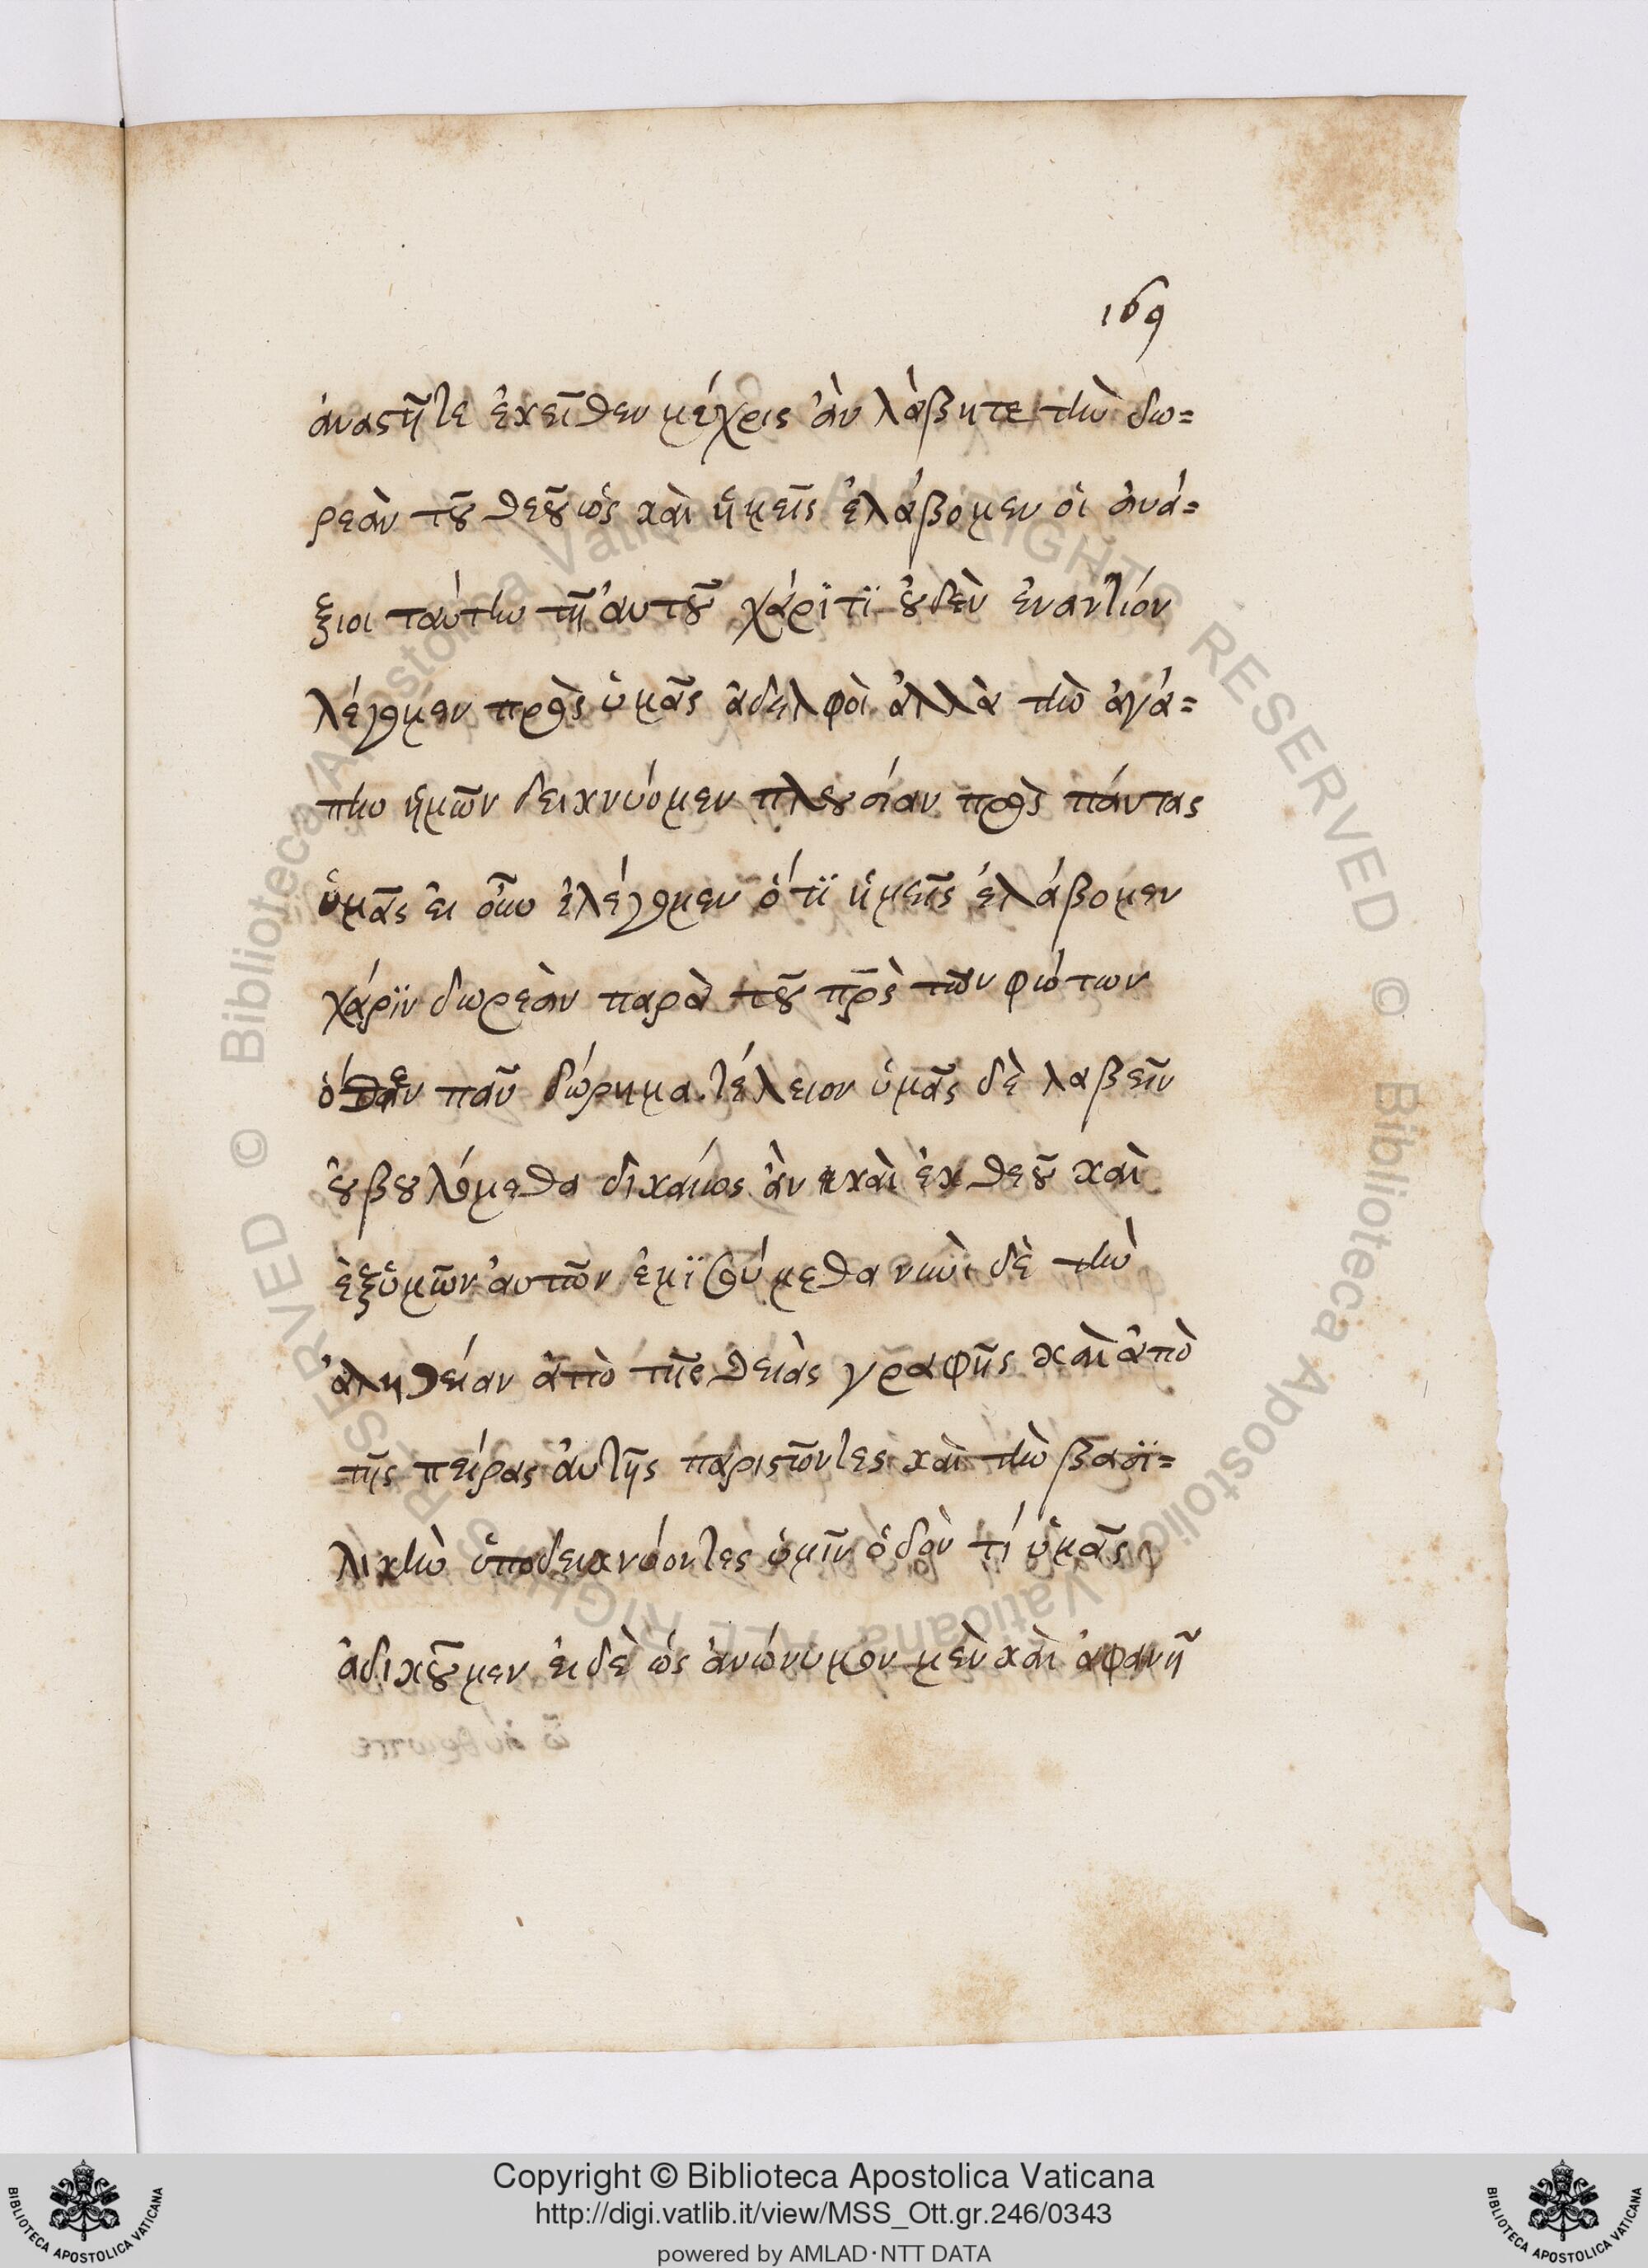 169
ἀναστῆτε ἐκεῖθεν μέχρις ἂν λάβητε τὴν δω=
ρεὰν τοῦ θεοῦ ὡς καὶ ἡμεῖς ἐλάβομεν οἱ ἀνά=
ξιοι ταύτην τῇ αὐτοῦ χάριτϊ οὐδὲν ἐναντίον
λέγομεν πρὸς ὑμᾶς ἀδελφοὶ ἀλλὰ τὴν ἀγά=
πην ἡμῶν δεικνύομεν πλουσίαν πρὸς πάντας
ὑμᾶς εἰ οὖν ἐλέγομεν ὅτϊ ἡμεῖς ἐλάβομεν
χάρϊν δωρεὰν παρὰ τοῦ πρ̅ς τῶν φώτων
ὅθεν πᾶν δώρημα τέλειον ὑμᾶς δὲ λαβεῖν
οὐ βουλόμεθα δικαίως ἂν καὶ ἐκ θεοῦ καὶ
ἐξ ὑμῶν αὐτῶν ἐμϊσούμεθα νυνὶ δὲ τὴν
ἀληθείαν ἀπὸ τῆς θειὰς γραφῆς καὶ ἀπὸ
τῆς πείρας αὐτῆς παριστῶντες καὶ τὴν βασϊ=
λικὴν ὑποδεικνύοντες ὑμῖν ὁδὸν τί ὑμᾶς
ἀδικοῦμεν εἰ δὲ ὡς ἀνώνυμον μὲν καὶ ἀφανῆ
Copyright © Biblioteca Apostolica Vaticana
http://digi.vatlib.it/view/MSS_Ott.gr.246/0343
powered by AMLAD·NTT DATA
BIBLIOTECA APOSTOLICA VATICANA
BIBLIOTECA APOSTOLICA VATICANA
© Biblioteca Apostolica Vaticana ALL RIGHTS RESERVED
© Biblioteca Apostolica Vaticana ALL RIGHTS RESERVED